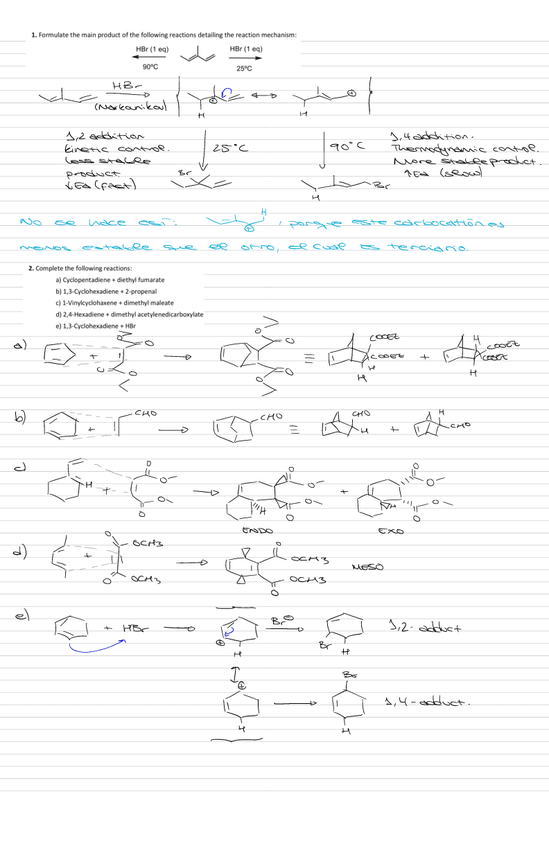 1. Formulate the main product of the following reactions detailing the reaction mechanism:
HBr (1 eq) HBr (1 eq)
90ºC 25ºC
HBr
(Markovnikov)
H H
1,2 addition
kinetic control.
less stable
product
↓Ea (fast)
25°C
90°C
1,4 addition.
Thermodynamic control.
More stable product.
↑Ea (slow)
Br
Br
H
H
No se hace así: , porque este carbocatión es
menos estable que el otro, el cual es terciario.
2. Complete the following reactions:
a) Cyclopentadiene + diethyl fumarate
b) 1,3-Cyclohexadiene + 2-propenal
c) 1-Vinylcyclohaxene + dimethyl maleate
d) 2,4-Hexadiene + dimethyl acetylenedicarboxylate
e) 1,3-Cyclohexadiene + HBr
a) + ≡ COOEt COOEt H H + H COOEt COOEt H
b) + CHO CHO ≡ CHO H + H CHO
c) H + H + H
ENDO EXO
d) + OCH3 OCH3 OCH3 OCH3 MESO
e) + HBr H Br⊖ Br H 1,2-adduct
H Br H 1,4-adduct.